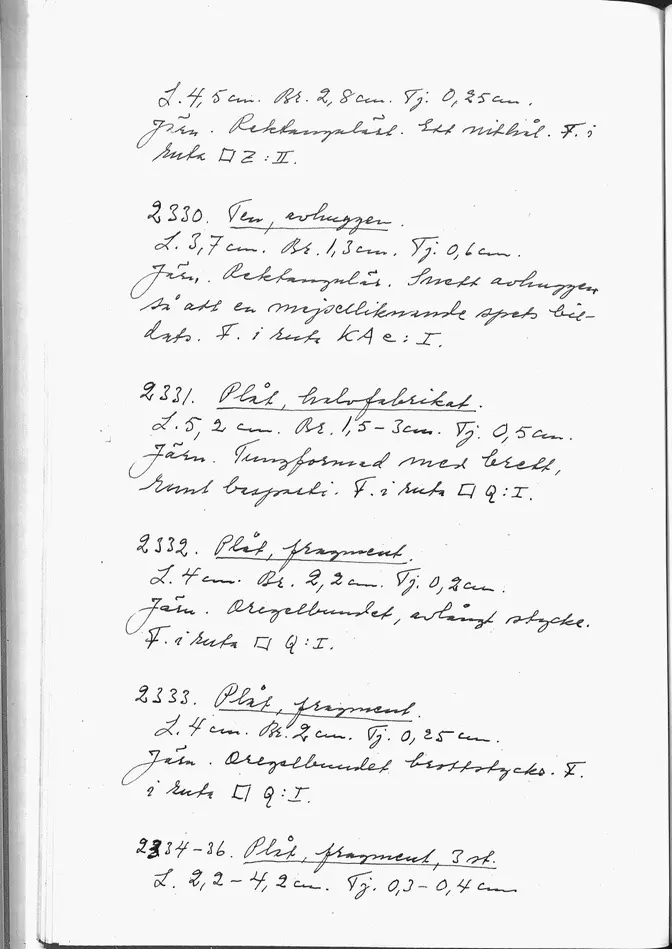 L. 4,5 cm. Br. 2,8 cm. Tj. 0,25 cm.
Järn. Rektangulärt. Ett nithål. F. i
ruta □ Z : II.
2330. Ten, avhuggen.
L. 3,7 cm. Br. 1,3 cm. Tj. 0,6 cm.
Järn. Rektangulär. Snett avhuggen
så att en mejselliknande spets bil-
dats. F. i ruta KA e : I.
2331. Plåt, halvfabrikat.
L. 5,2 cm. Br. 1,5 - 3 cm. Tj. 0,5 cm.
Järn. Tungformad med brett,
runt basparti. F. i ruta □ Q : I.
2332. Plåt, fragment.
L. 4 cm. Br. 2,2 cm. Tj. 0,2 cm.
Järn. Oregelbundet, avlångt stycke.
F. i ruta □ Q : I.
2333. Plåt, fragment.
L. 4 cm. Br. 2 cm. Tj. 0,25 cm.
Järn. Oregelbundet brottstycke. F.
i ruta □ Q : I.
2334-36. Plåt, fragment, 3 st.
L. 2,2 - 4,2 cm. Tj. 0,3 - 0,4 cm